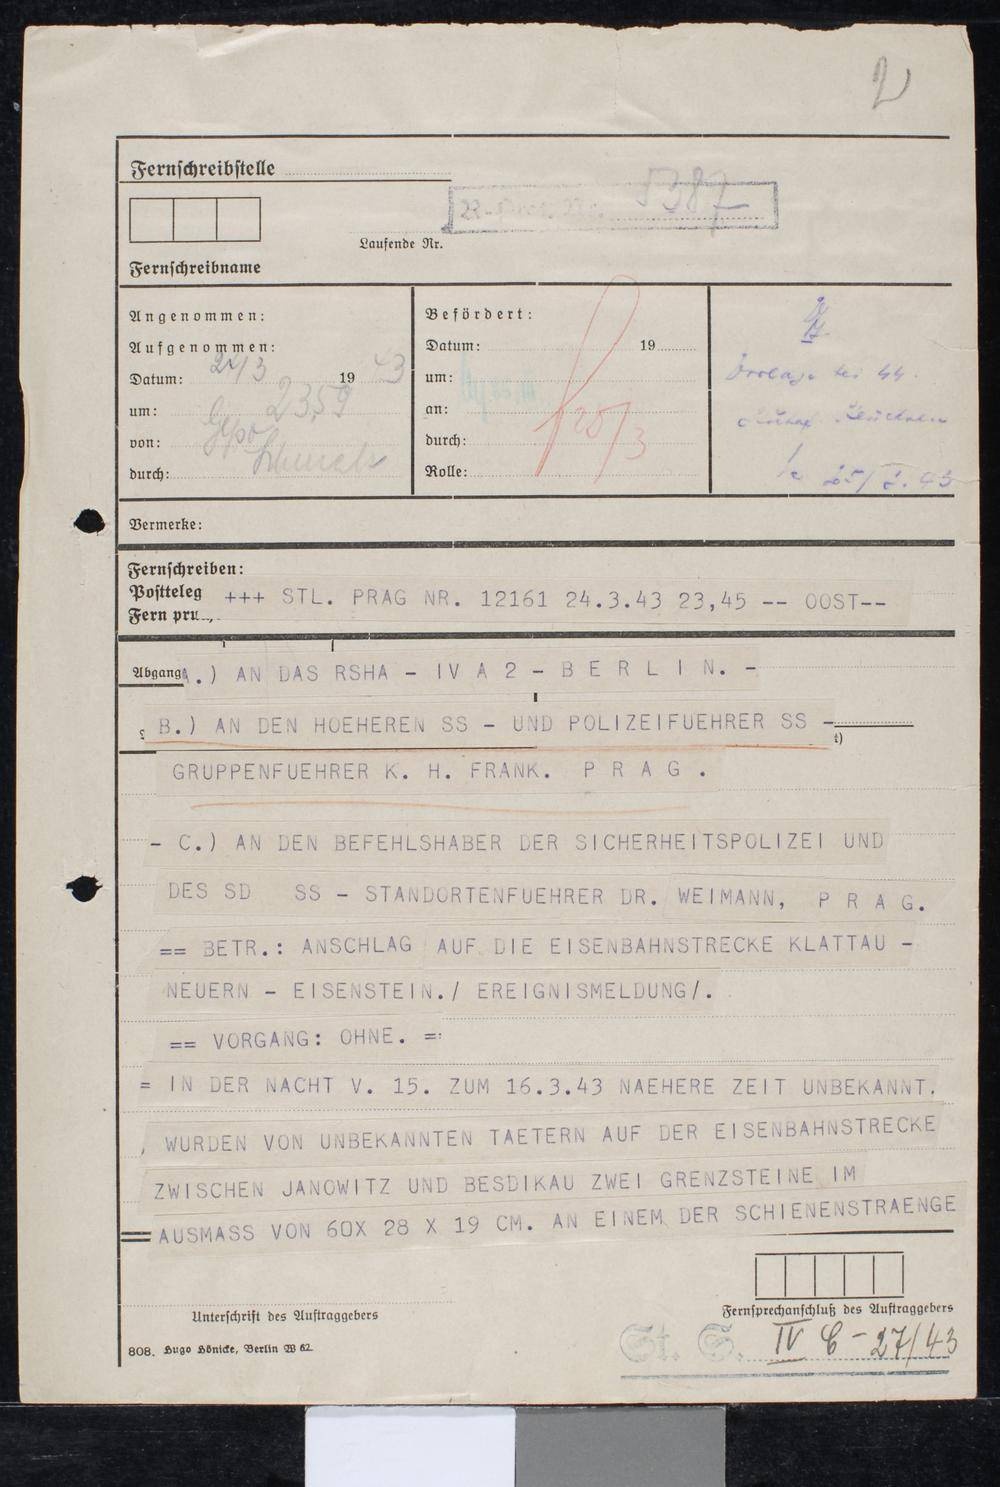 2
Fernschreibstelle
5387
Laufende Nr.
Fernschreibname
Angenommen:
Aufgenommen:
Datum: 24/3 19 43
um: 2359
von:
durch:
Befördert:
Datum: 19
um:
an:
durch: 25/3
Rolle:
25/ 3. 43
Vermerke:
Fernschreiben:
Postteleg
Fern pru
+++ STL. PRAG NR. 12161 24.3.43 23,45 -- OOST--
Abgang
A.) AN DAS RSHA - IV A 2 - B E R L I N. -
B.) AN DEN HOEHEREN SS - UND POLIZEIFUEHRER SS -
GRUPPENFUEHRER K. H. FRANK. P R A G .
- C.) AN DEN BEFEHLSHABER DER SICHERHEITSPOLIZEI UND
DES SD SS - STANDORTENFUEHRER DR. WEIMANN, P R A G.
== BETR.: ANSCHLAG AUF DIE EISENBAHNSTRECKE KLATTAU -
NEUERN - EISENSTEIN./ EREIGNISMELDUNG/.
== VORGANG: OHNE. =
= IN DER NACHT V. 15. ZUM 16.3.43 NAEHERE ZEIT UNBEKANNT.
, WURDEN VON UNBEKANNTEN TAETERN AUF DER EISENBAHNSTRECKE
ZWISCHEN JANOWITZ UND BESDIKAU ZWEI GRENZSTEINE IM
AUSMASS VON 60X 28 X 19 CM. AN EINEM DER SCHIENENSTRAENGE
Unterschrift des Auftraggebers
Fernsprechanschluß des Auftraggebers
808. Hugo Hönicke, Berlin W 62.
St. S. IV C - 27/43